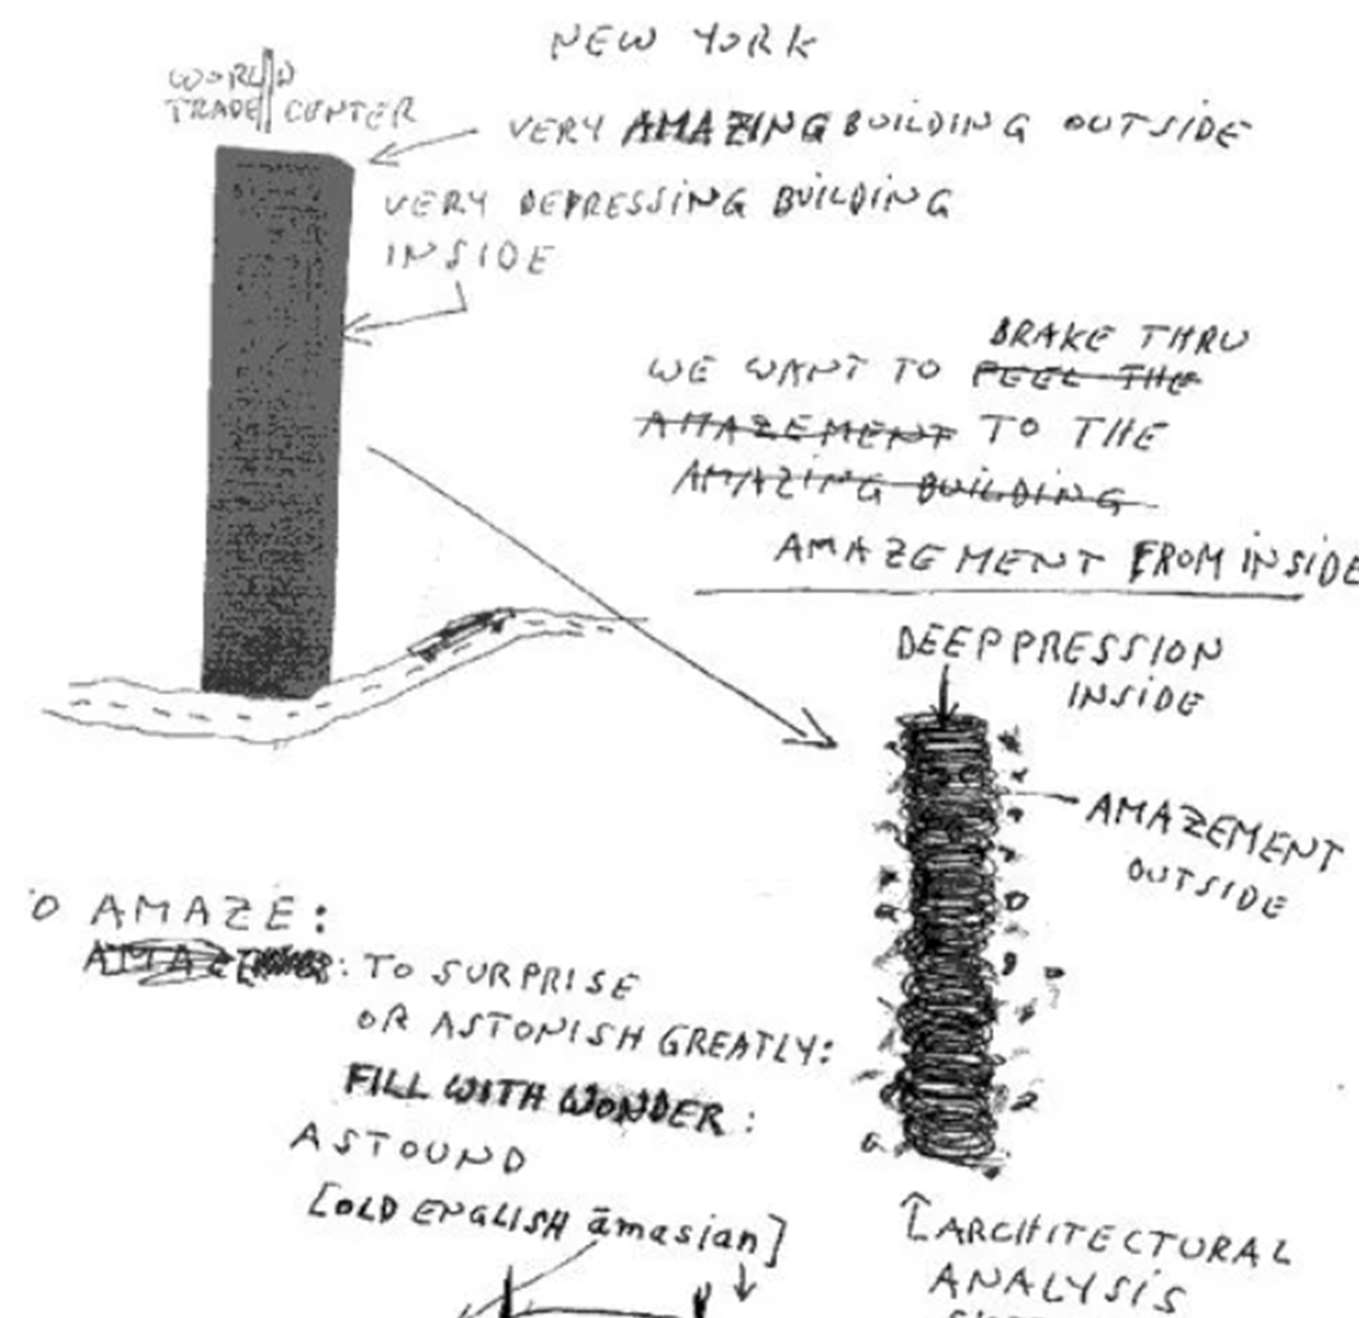 NEW YORK
WORLD
TRADE CENTER
VERY AMAZING BUILDING OUTSIDE
VERY DEPRESSING BUILDING
INSIDE
BRAKE THRU
WE WANT TO FEEL THE
AMAZEMENT TO THE
AMAZING BUILDING
AMAZEMENT FROM INSIDE
DEEPPRESSION
INSIDE
AMAZEMENT
OUTSIDE
O AMAZE:
: TO SURPRISE
OR ASTONISH GREATLY:
FILL WITH WONDER:
ASTOUND
[OLD ENGLISH āmasian]
ARCHITECTURAL
ANALYSIS